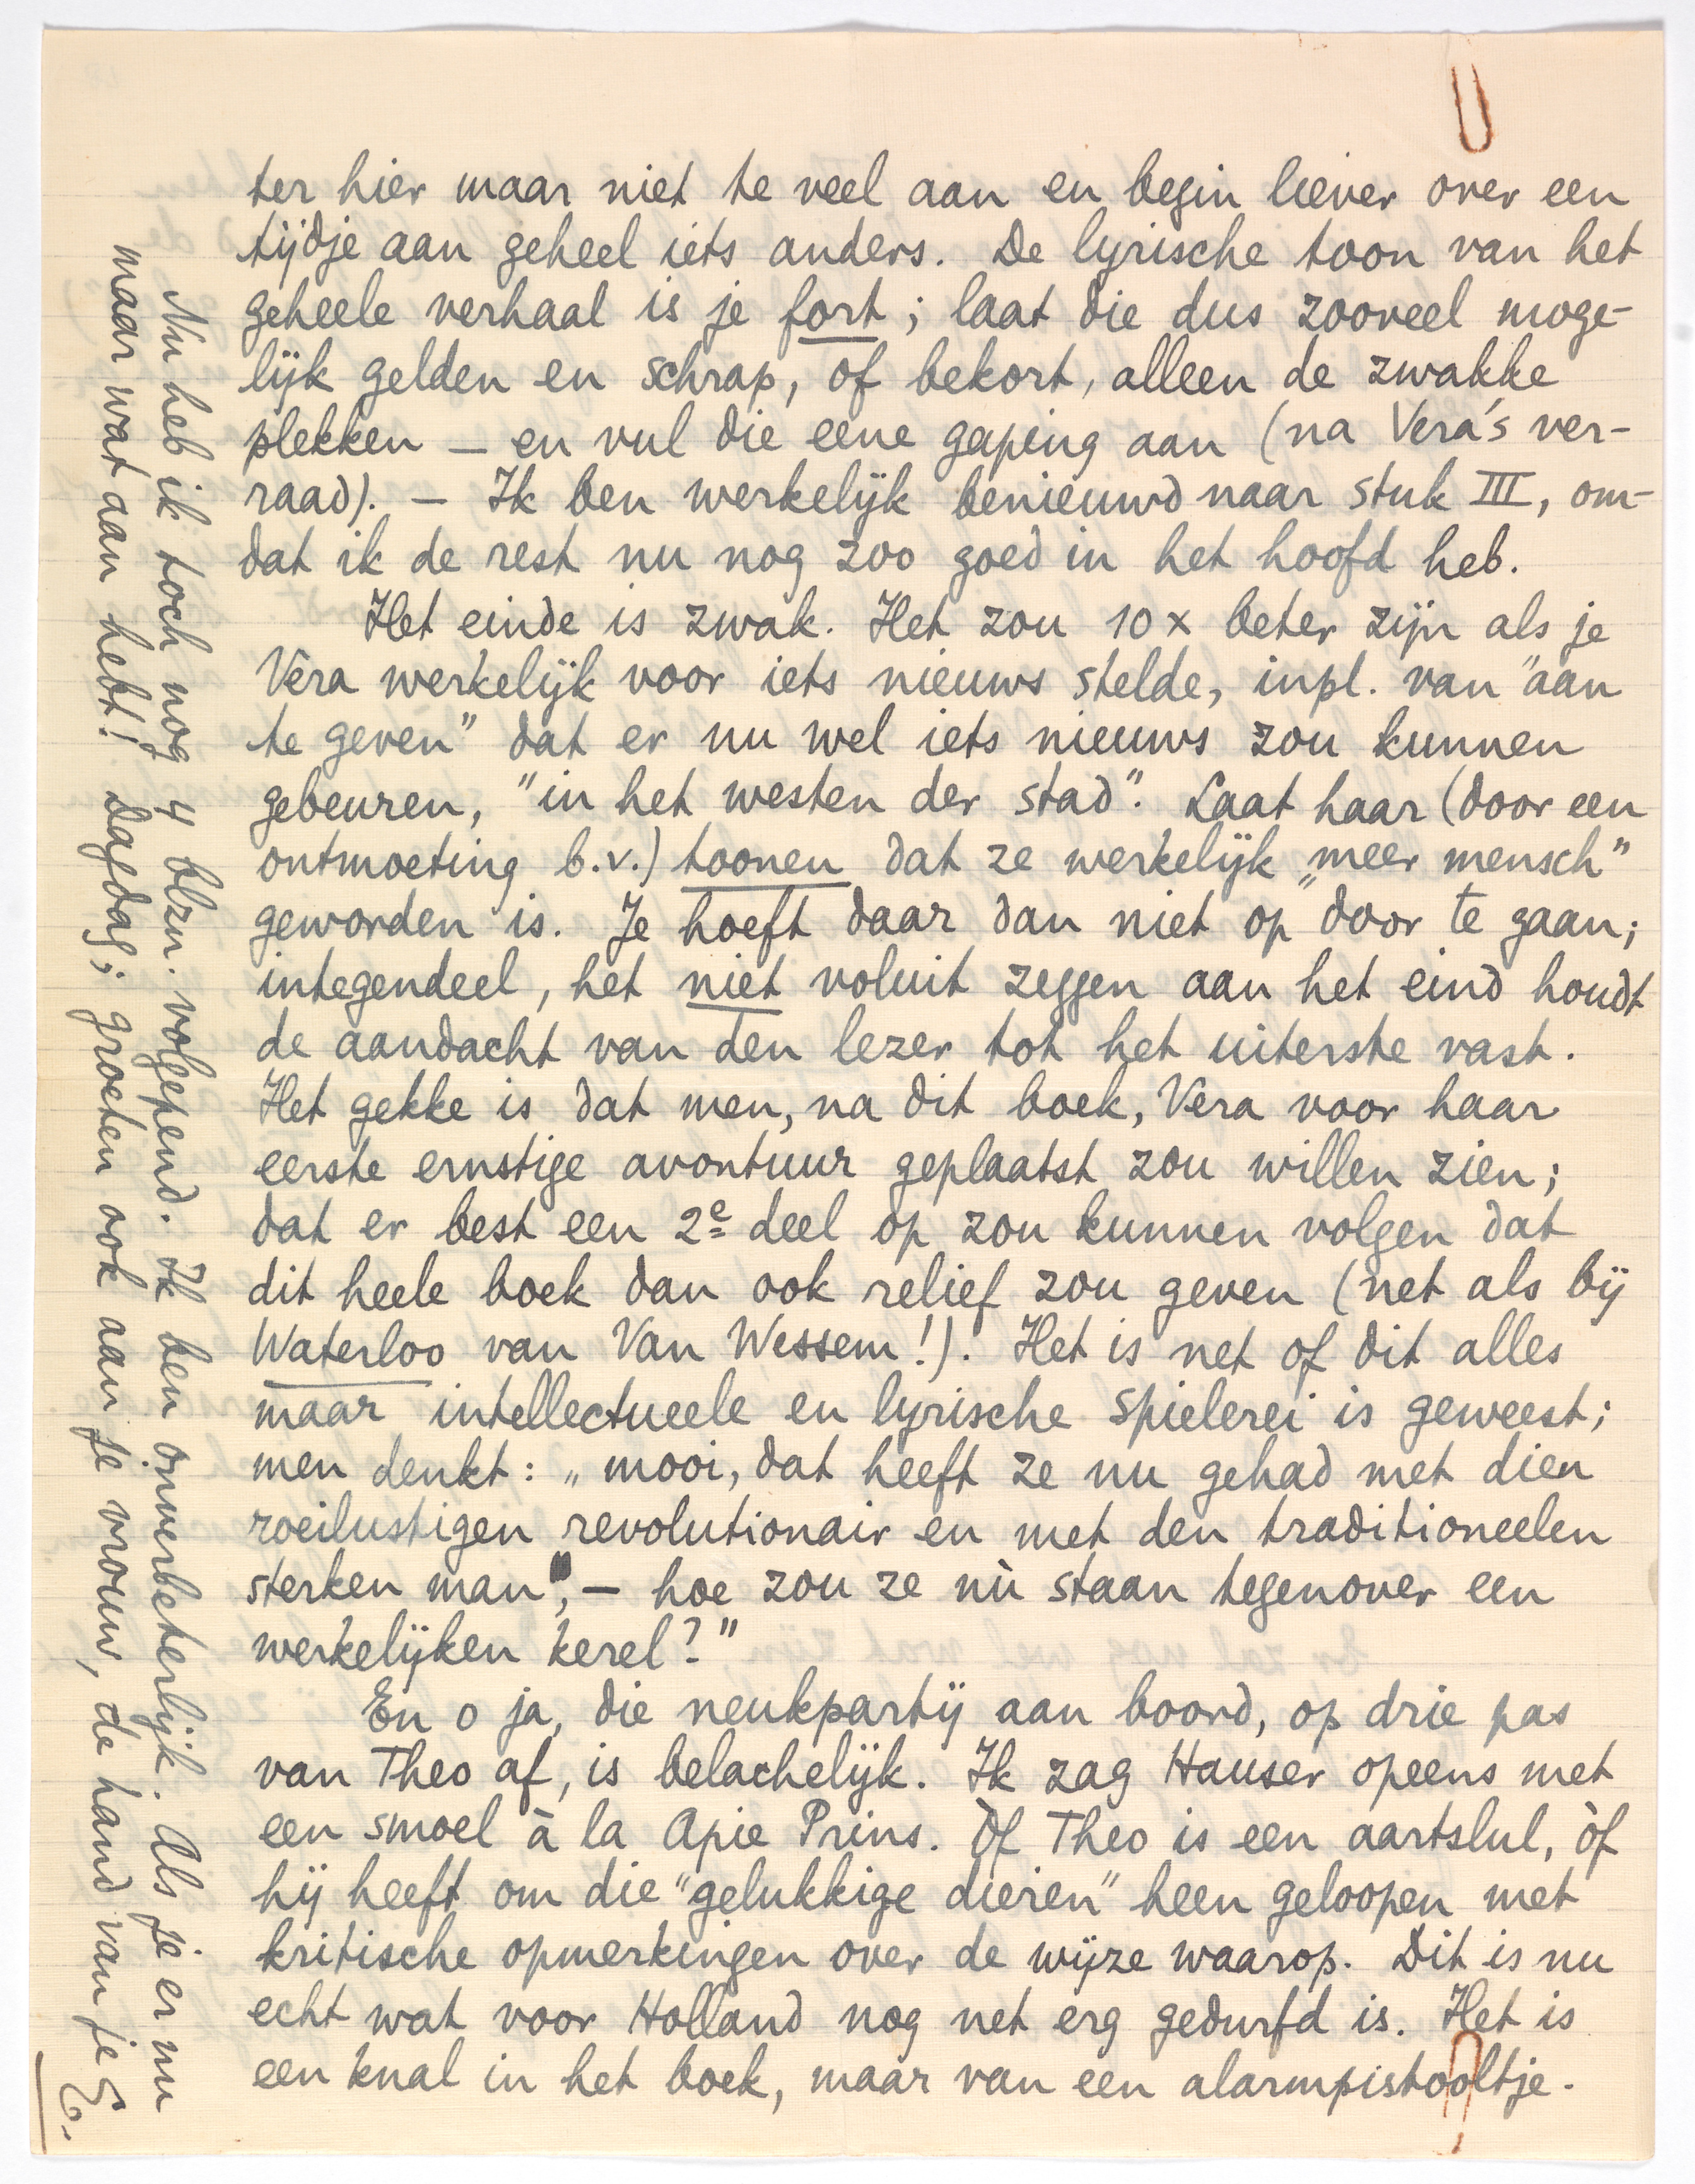 ter hier maar niet te veel aan en begin liever over een
tijdje aan geheel iets anders. De lyrische toon van het
geheele verhaal is je fort; laat die dus zooveel moge-
lijk gelden en schrap, of bekort, alleen de zwakke
plekken – en vul die eene gaping aan (na Vera's ver-
raad). – Ik ben werkelijk benieuwd naar stuk III, om-
dat ik de rest nu nog zoo goed in het hoofd heb.
Het einde is zwak. Het zou 10 x beter zijn als je
Vera werkelijk voor iets nieuws stelde, inpl. van "aan
te geven" dat er nu wel iets nieuws zou kunnen
gebeuren, "in het westen der stad". Laat haar (door een
ontmoeting b.v.) toonen dat ze werkelijk „meer mensch"
geworden is. Je hoeft daar dan niet op door te gaan;
integendeel, het niet voluit zeggen aan het eind houdt
de aandacht van den lezer tot het uiterste vast.
Het gekke is dat men, na dit boek, Vera voor haar
eerste ernstige avontuur geplaatst zou willen zien;
dat er best een 2e deel op zou kunnen volgen dat
dit heele boek dan ook relief zou geven (net als bij
Waterloo van Van Wessem!). Het is net of dit alles
maar intellectueele en lyrische spielerei is geweest;
men denkt: „mooi, dat heeft ze nu gehad met dien
roeilustigen revolutionair en met den traditioneelen
sterken man, – hoe zou ze nù staan tegenover een
werkelijken kerel?"
En o ja, die neukpartij aan boord, op drie pas
van Theo af, is belachelijk. Ik zag Hauser opeens met
een smoel à la Apie Prins. Òf Theo is een aartslul, òf
hij heeft om die "gelukkige dieren" heen geloopen met
kritische opmerkingen over de wijze waarop. Dit is nu
echt wat voor Holland nog net erg gedurfd is. Het is
een knal in het boek, maar van een alarmpistooltje.
Nu heb ik toch nog 4 blzn. volgepend. Ik ben onverbeterlijk. Als je er nu
maar wat aan hebt! Dagdag; groeten ook aan je vrouw, de hand van je E.